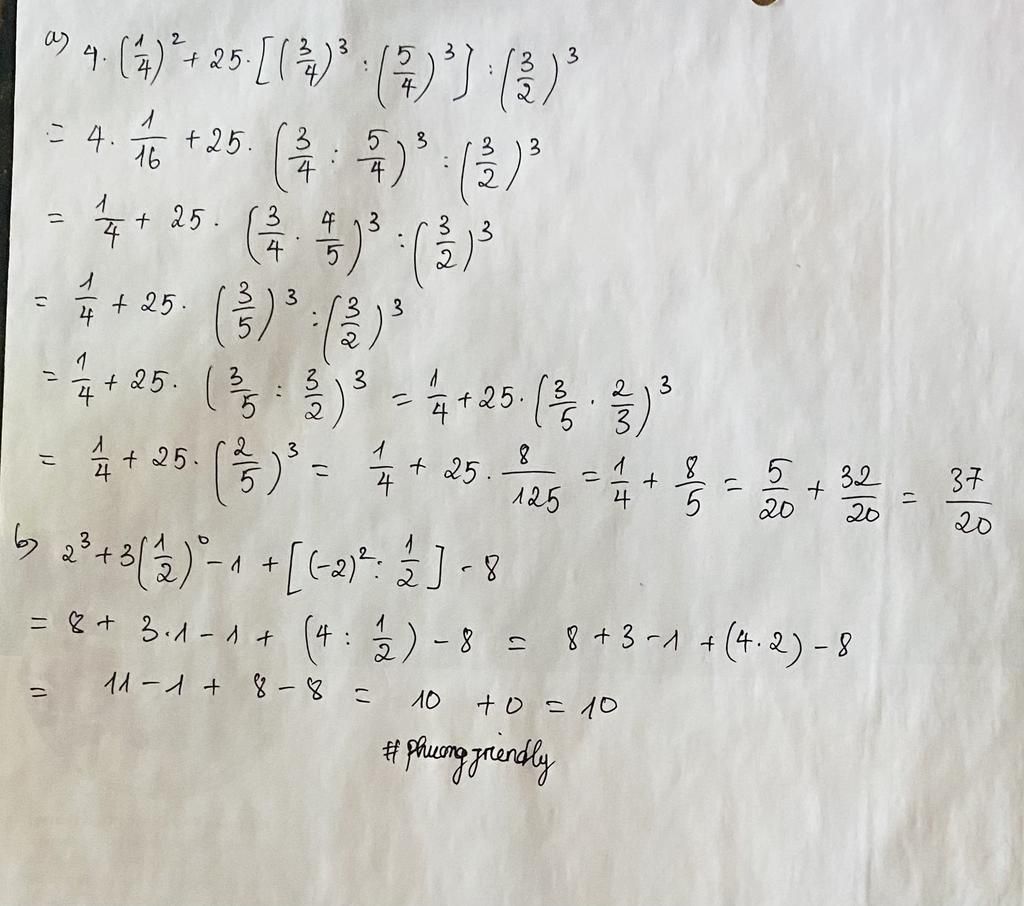 a) 4·(1/4)² + 25·[(3/4)³ : (5/4)³] : (3/2)³
= 4· 1/16 + 25· (3/4 : 5/4)³ : (3/2)³
= 1/4 + 25 · (3/4 · 4/5)³ : (3/2)³
= 1/4 + 25· (3/5)³ : (3/2)³
= 1/4 + 25· (3/5 : 3/2)³ = 1/4 + 25·(3/5 · 2/3)³
= 1/4 + 25·(2/5)³ = 1/4 + 25· 8/125 = 1/4 + 8/5 = 5/20 + 32/20 = 37/20
b) 2³ + 3(1/2)⁰ - 1 + [(-2)² : 1/2] - 8
= 8 + 3·1 - 1 + (4 : 1/2) - 8 = 8 + 3 - 1 + (4·2) - 8
= 11 - 1 + 8 - 8 = 10 + 0 = 10
#phuongfriendly